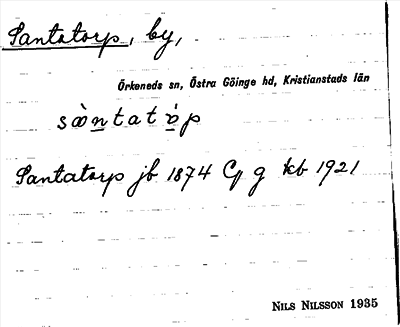 Santatorp, by,
Örkeneds sn, Östra Göinge hd, Kristianstads län
sàntatòp
Santatorp jb 1874 Cg g kb 1921
NILS NILSSON 1935